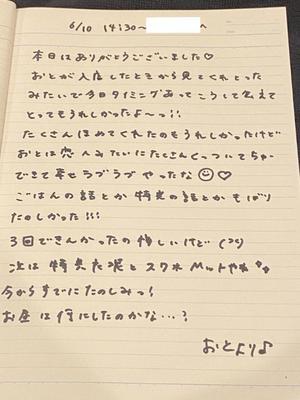 6/10 14:30〜 へ
本日はありがとうございました♡
おとが入店したときから見てくれとった
みたいで今日タイミングあってこうして会えて
とってもうれしかったよ〜っ!!
たくさんほめてくれたのもうれしかったけど
おとは恋人みたいにたくさんくっついてちゅー
できて幸せラブラブやったな☺♡
ごはんの話とか 特急の話とか もばり
たのしかった!!!
3回できんかったの悔しいけど
次は 特急 泥 と スク水 Mットやね
今からすでにたのしみっ!
お昼は何にしたのかな…?
おとより♪